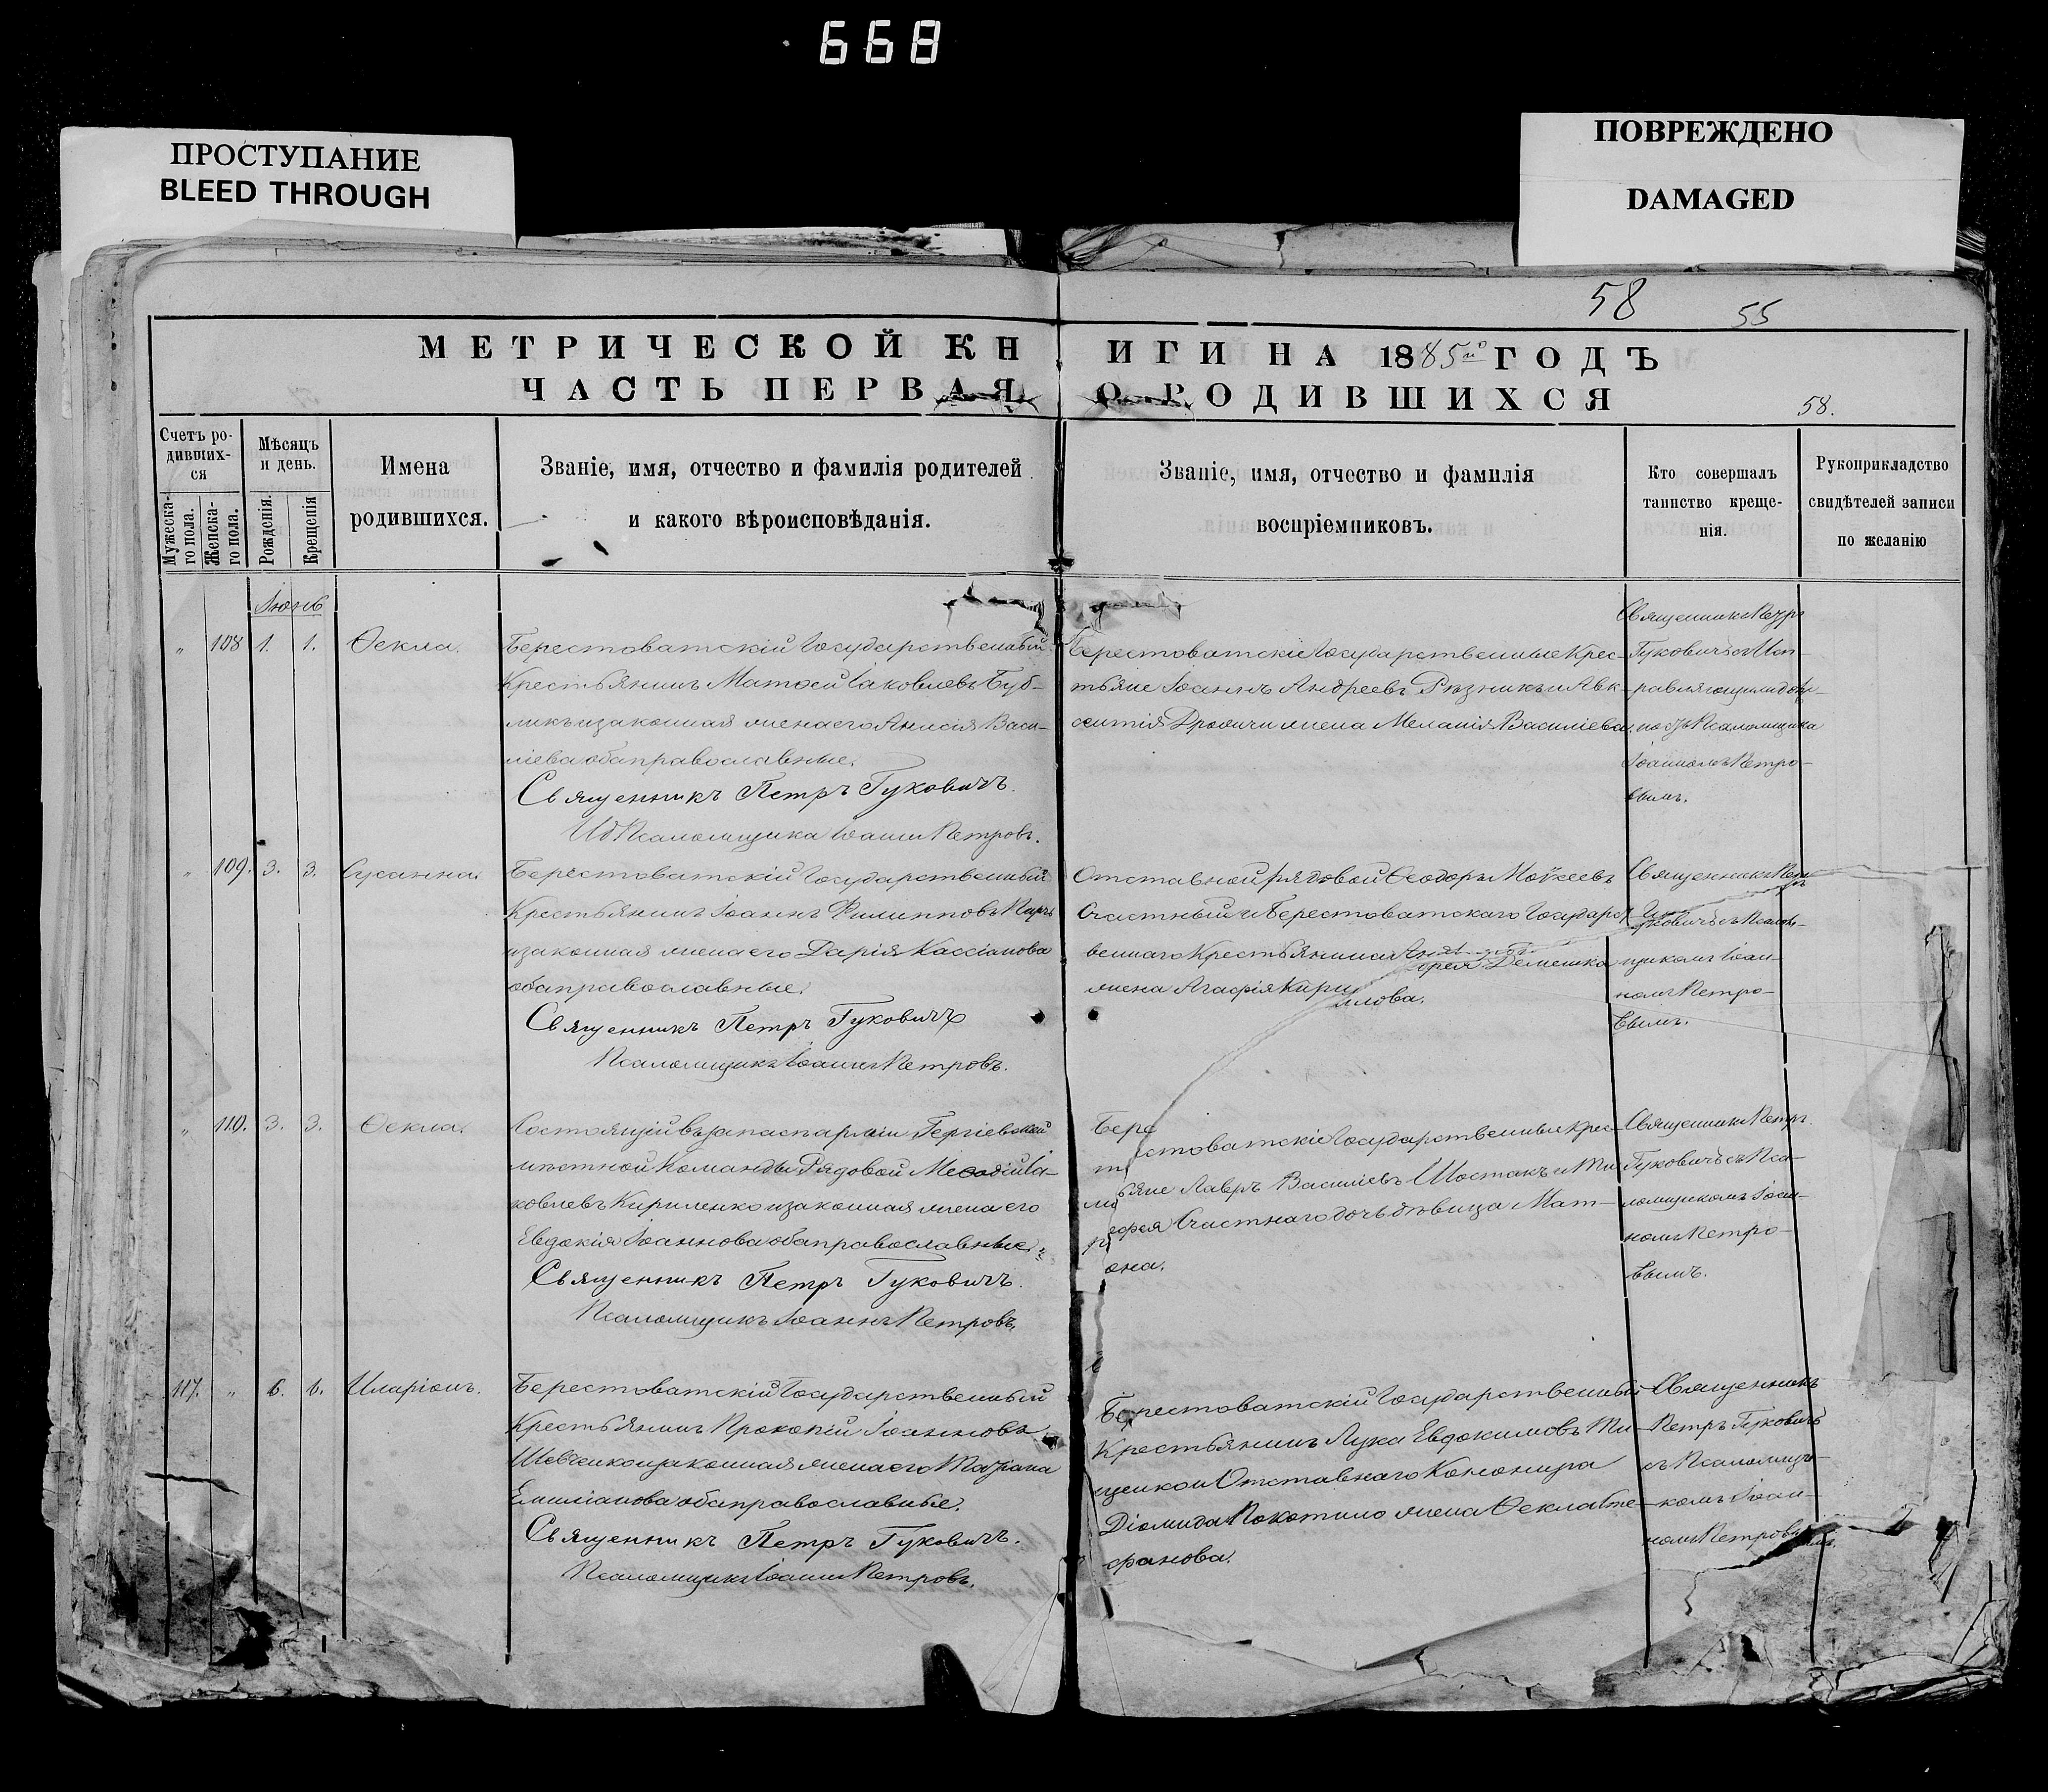 668
ПРОСТУПАНИЕ
BLEED THROUGH
ПОВРЕЖДЕНО
DAMAGED
58
55
МЕТРИЧЕСКОЙ КНИГИ НА 1885й ГОДЪ
ЧАСТЬ ПЕРВАЯ О РОДИВШИХСЯ
58.
Счетъ ро-
дивших-
ся
Мужеска-
го пола.
Женска-
го пола.
Мѣсяцъ
и день.
Рожденія.
Крещенія
Имена
родившихся.
Званіе, имя, отчество и фамилія родителей
и какого вѣроисповѣданія.
Званіе, имя, отчество и фамилія
воспріемниковъ.
Кто совершалъ
таинство креще-
нія.
Рукоприкладство
свидѣтелей записи
по желанію
Іюнь
" 108 1. 1. Ѳекла.
Берестоватскій Государственный
Крестьянинъ Матѳей Іаковлевъ Буб-
ликъ и законная жена его Анисія Васи-
ліева оба православные.
Священникъ Петръ Гуковичъ.
Псаломщика Іоаннъ Петровъ.
Берестоватскіе Государственные Крес-
тьяне Іоаннъ Андреевъ Рѣзникъ и Авк-
сентія жена Меланія Василіева.
Священникъ Петръ
Гуковичъ съ Исп-
равляющимъ долж-
ность Псаломщика
Іоанномъ Петро-
вымъ.
" 109. 3. 3. Сусанна.
Берестоватскій Государственный
Крестьянинъ Іоаннъ Филипповъ
и законная жена его Дарія Кассіанова
оба православные.
Священникъ Петръ Гуковичъ
Псаломщикъ Іоаннъ Петровъ.
Отставной рядовой Ѳеодоръ Мокеевъ
Счастный и Берестоватскаго Государст-
веннаго Крестьянина Андрея Демешка
жена Агафія Кириллова.
Священникъ Петръ
Гуковичъ съ Псалом-
щикомъ Іоан-
номъ Петро-
вымъ.
" 110. 3. 3. Ѳекла.
Состоящій въ запасѣ арміи Георгіевской
мѣстной Команды Рядовой Меѳодій Іа-
ковлевъ Кириленко и законная жена его
Евдокія Іоаннова оба православные.
Священникъ Петръ Гуковичъ.
Псаломщикъ Іоаннъ Петровъ.
Берестоватскіе Государственные крес-
тьяне Лавръ Василіевъ Шостакъ и Ти-
моѳея Счастнаго дочь дѣвица Мат-
рона.
Священникъ Петръ
Гуковичъ съ Пса-
ломщикомъ Іоан-
номъ Петро-
вымъ.
117. " 6. 6. Иларіонъ.
Берестоватскій Государственный
Крестьянинъ Прокопій Іоанновъ
Шевченко и законная жена его Татіана
Емиліанова оба православные.
Священникъ Петръ Гуковичъ.
Псаломщикъ Іоаннъ Петровъ.
Берестоватскій Государственный
Крестьянинъ Лука Евдокимовъ Ти-
щенко и Отставнаго Канонира
Діомида Покотило жена Ѳекла Сте-
фанова.
Священникъ
Петръ Гуковичъ
съ Псаломщи-
комъ Іоан-
номъ Петровымъ.